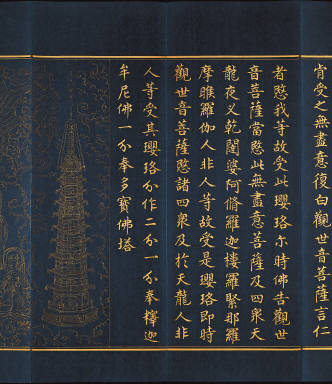 肯受之無盡意復白觀世音菩薩言仁
者愍我等故受此瓔珞尒時佛告觀世
音菩薩當愍此無盡意菩薩及四衆天
龍夜叉乾闥婆阿脩羅迦樓羅緊那羅
摩睺羅伽人非人等故受是瓔珞即時
觀世音菩薩愍諸四衆及於天龍人非
人等受其瓔珞分作二分一分奉釋迦
牟尼佛一分奉多寶佛塔